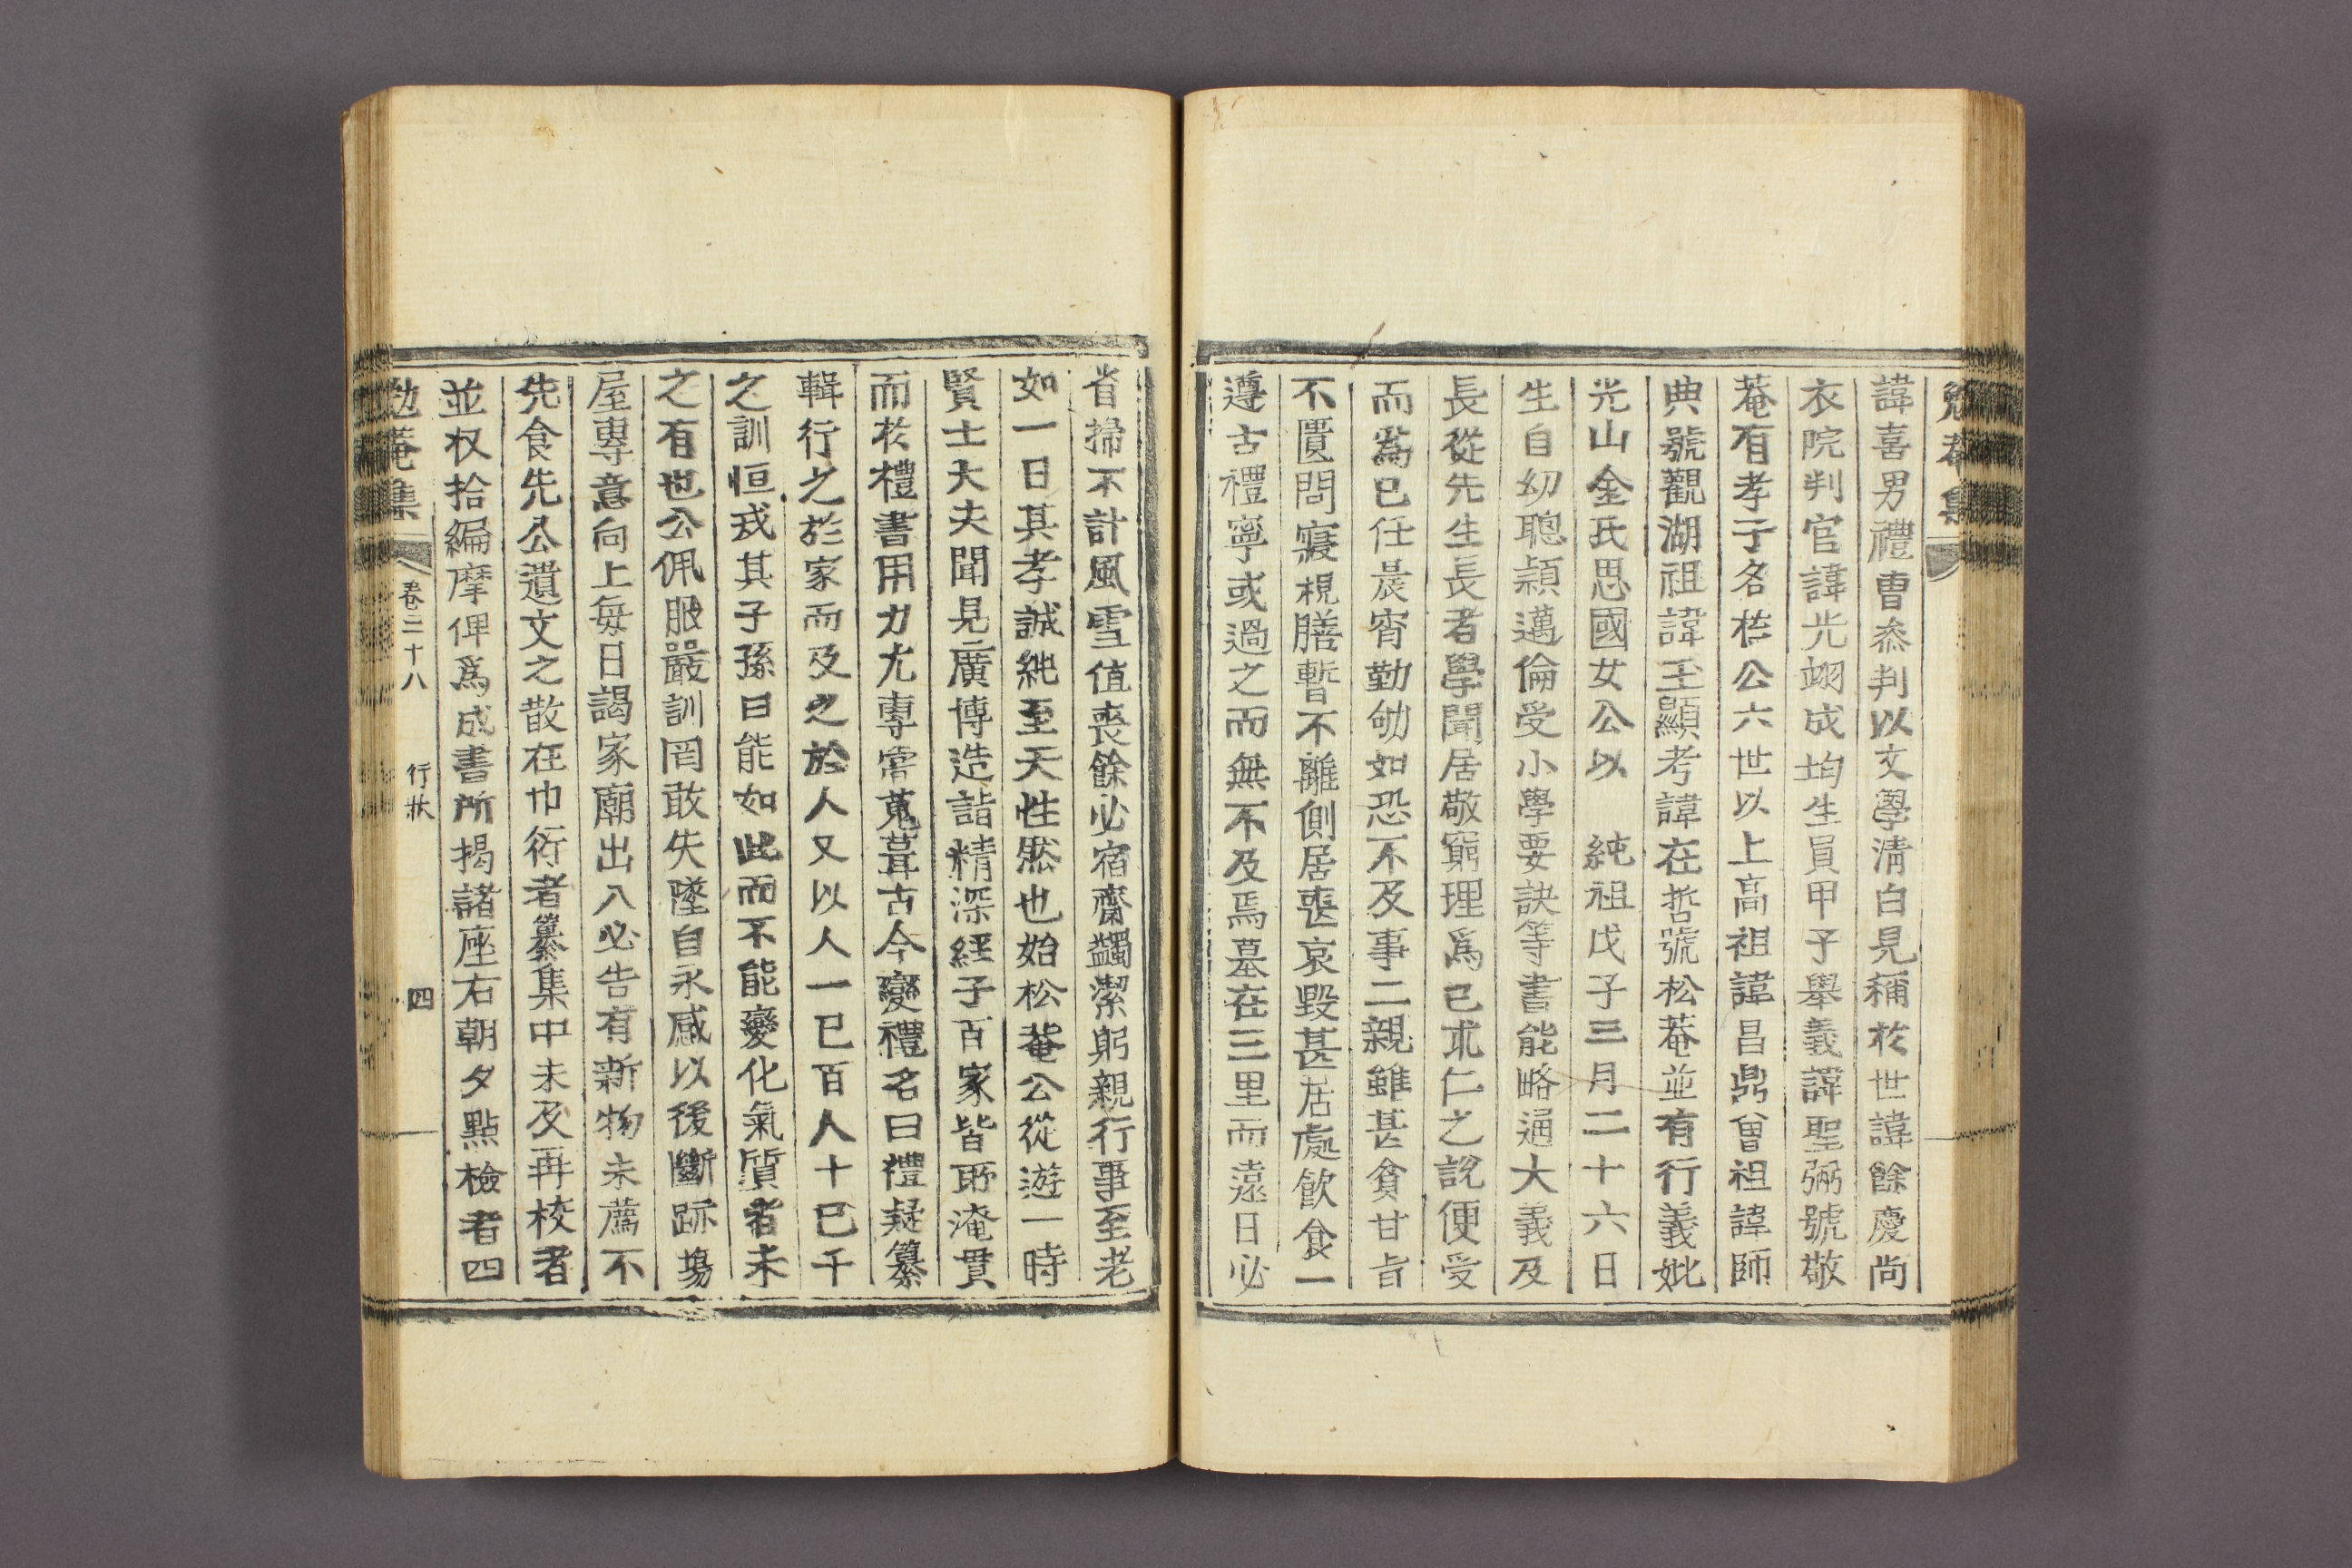 勉菴集
諱喜男禮曹叅判以文學淸白見稱於世諱餘慶尙
衣院判官諱光翊成均生員甲子舉義諱聖弼號敬
菴有孝子名於公六世以上高祖諱昌鼎曾祖諱師
典號觀湖祖諱玉顯考諱在哲號松菴並有行義妣
光山金氏思國女公以 純祖戊子三月二十六日
生自幼聰穎邁倫受小學要訣等書能略通大義及
長從先生長者學聞居敬窮理爲己求仁之說便受
而爲己任晨宵勤劬如恐不及事二親雖甚貧甘旨
不匱問寢視膳暫不離側居喪哀毀甚居處飮食一
遵古禮寧或過之而無不及焉墓在三里而遠日必
省掃不計風雪値喪餘必宿齋蠲潔躬親行事至老
如一日其孝誠純至天性然也始松菴公從遊一時
賢士大夫聞見廣博造詣精深經子百家皆所淹貫
而於禮書用力尤專嘗蒐葺古今變禮名曰禮疑纂
輯行之於家而及之於人又以人一己百人十己千
之訓恒戒其子孫曰能如此而不能變化氣質者未
之有也公佩服嚴訓罔敢失墜自永感以後斷跡場
屋專意向上每日謁家廟出入必告有新物未薦不
先食先公遺文之散在巾衍者纂集中未及再校者
並收拾編摩俾爲成書所揭諸座右朝夕點檢者四
勉菴集 卷二十八 行狀 四